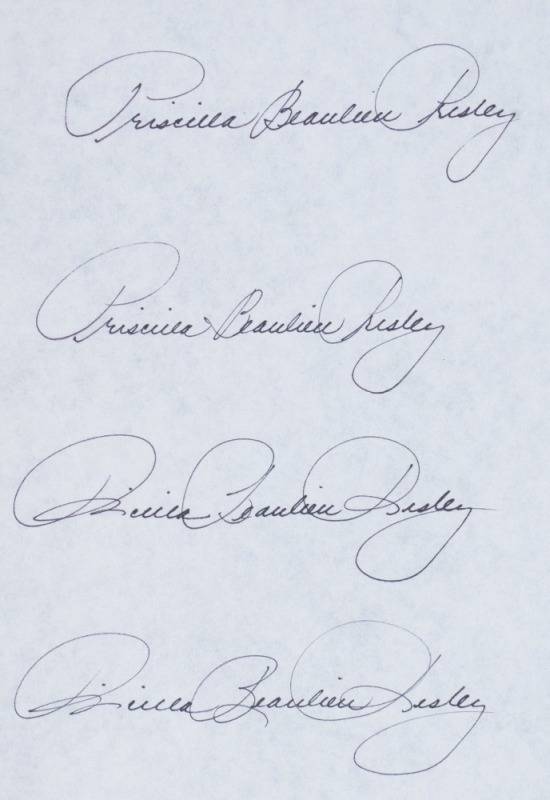 Priscilla Beaulieu Presley
Priscilla Beaulieu Presley
Priscilla Beaulieu Presley
Priscilla Beaulieu Presley